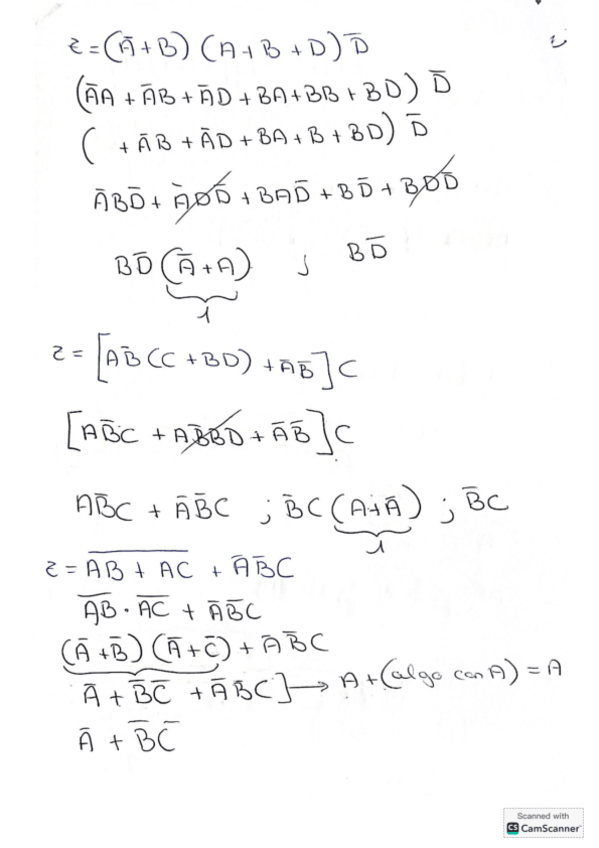 z = (Ā + B) (A + B + D) D̄
(ĀA + ĀB + ĀD + BA + BB + BD) D̄
( + ĀB + ĀD + BA + B + BD) D̄
ĀBD̄ + ĀDD̄ + BAD̄ + BD̄ + BDD̄
BD̄ (Ā + A) ; BD̄
1
z = [AB̄ (C + BD) + ĀB̄] C
[AB̄C + AB̄BD + ĀB̄] C
AB̄C + ĀB̄C ; B̄C (A + Ā) ; B̄C
1
z = \overline{AB + AC} + ĀB̄C
\overline{AB} · \overline{AC} + ĀB̄C
(Ā + B̄) (Ā + C̄) + ĀB̄C
Ā + B̄C̄ + ĀB̄C] → A + (algo con A) = A
Ā + B̄C̄
Scanned with
CS CamScanner